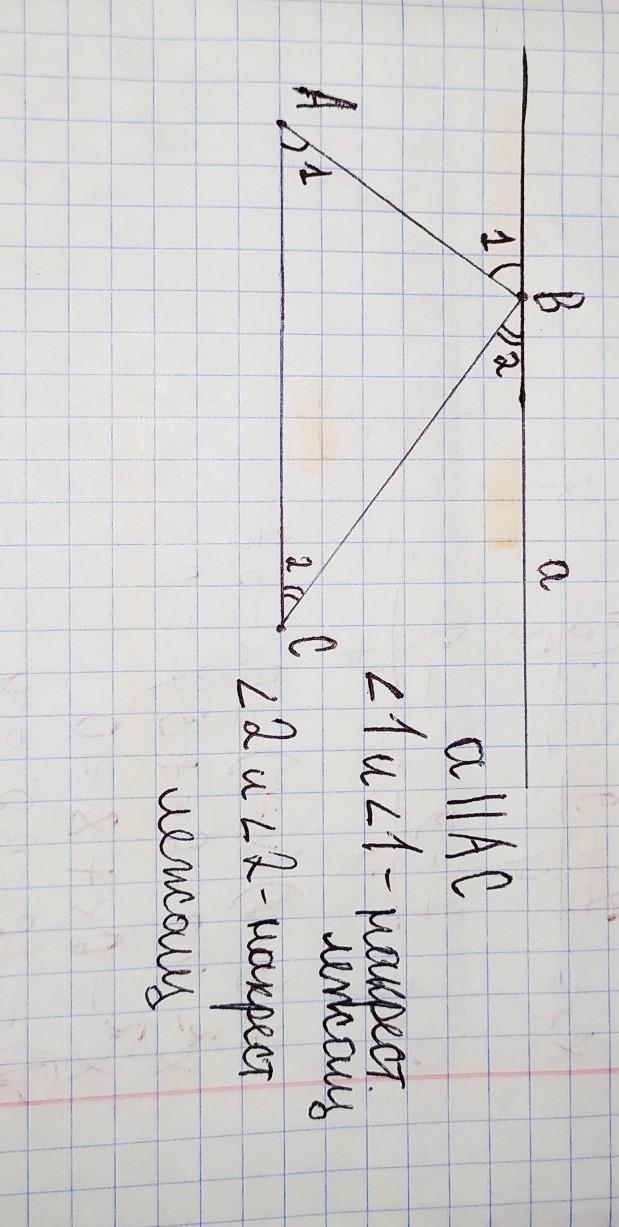 B
a
1
2
A
1
2
C
a || AC
∠1 и ∠1 - накрест
лежащ
∠2 и ∠2 - накрест
лежащ